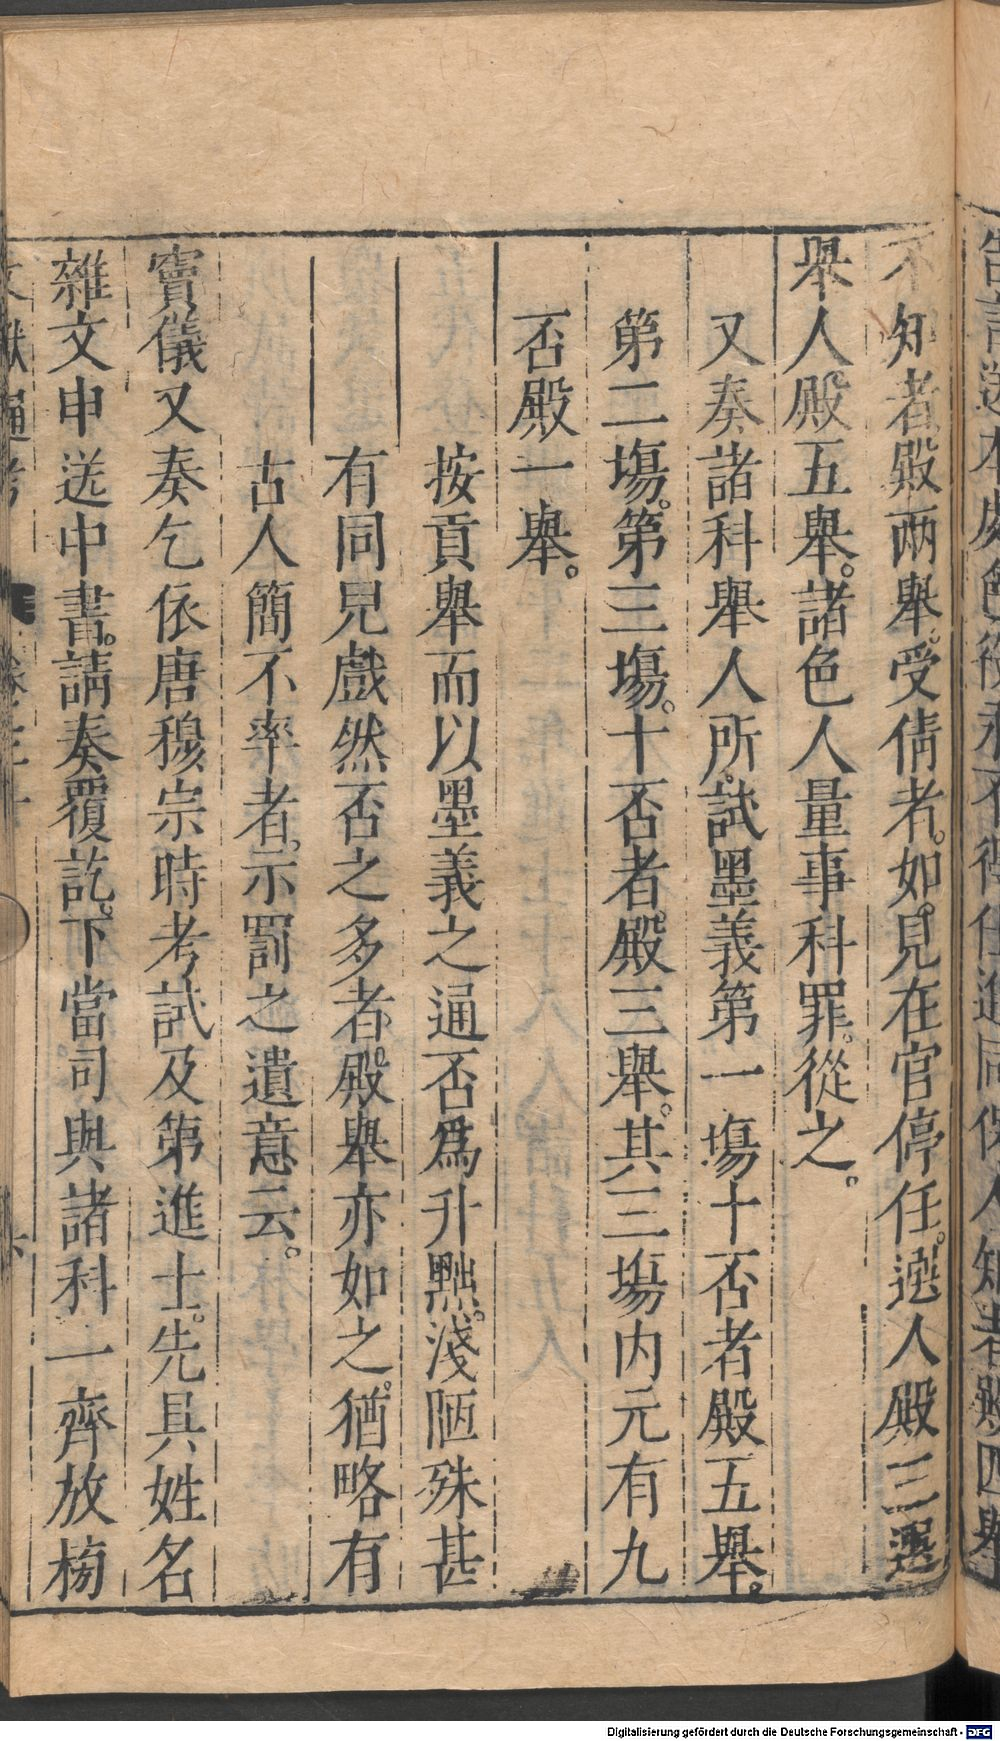 不知者殿兩舉。受倩者。如見在官停任。選人殿三選
舉人殿五舉。諸色人量事科罪。從之。
又奏諸科舉人所試墨義第一場十否者殿五舉。
第二場。第三場。十否者。殿三舉。其三場内元有九
否殿一舉。
按貢舉而以墨義之通否爲升黜。淺陋殊甚
有同兒戲然否之多者。殿舉亦如之。猶略有
古人簡不率者。示罰之遺意云。
竇儀又奏乞依唐穆宗時考試及第進士。先具姓名
雜文申送中書。請奏覆訖。下當司與諸科一齊放榜
Digitalisierung gefördert durch die Deutsche Forschungsgemeinschaft - DFG